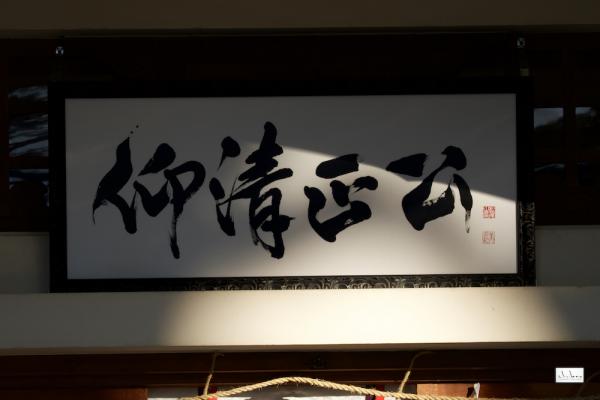 仰清正公